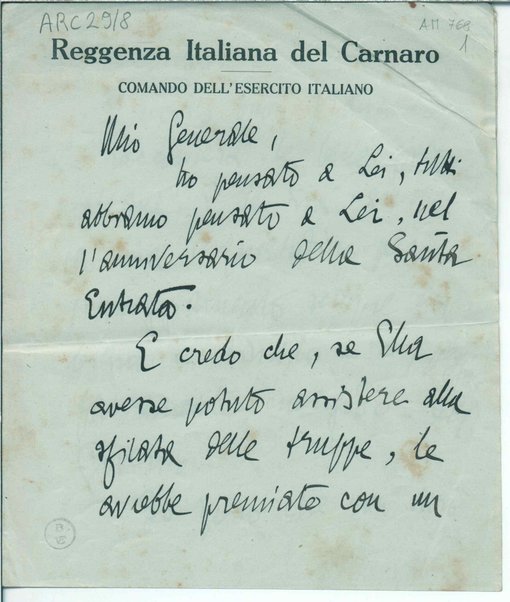 ARC 29/8
AM 769
1
Reggenza Italiana del Carnaro
COMANDO DELL'ESERCITO ITALIANO
Mio Generale,
ho pensato a Lei, tutti
abbiamo pensato a Lei, nel
l'anniversario della Santa
Entrata.
E credo che, se Ella
avesse potuto assistere alla
sfilata delle truppe, le
avrebbe premiato con un